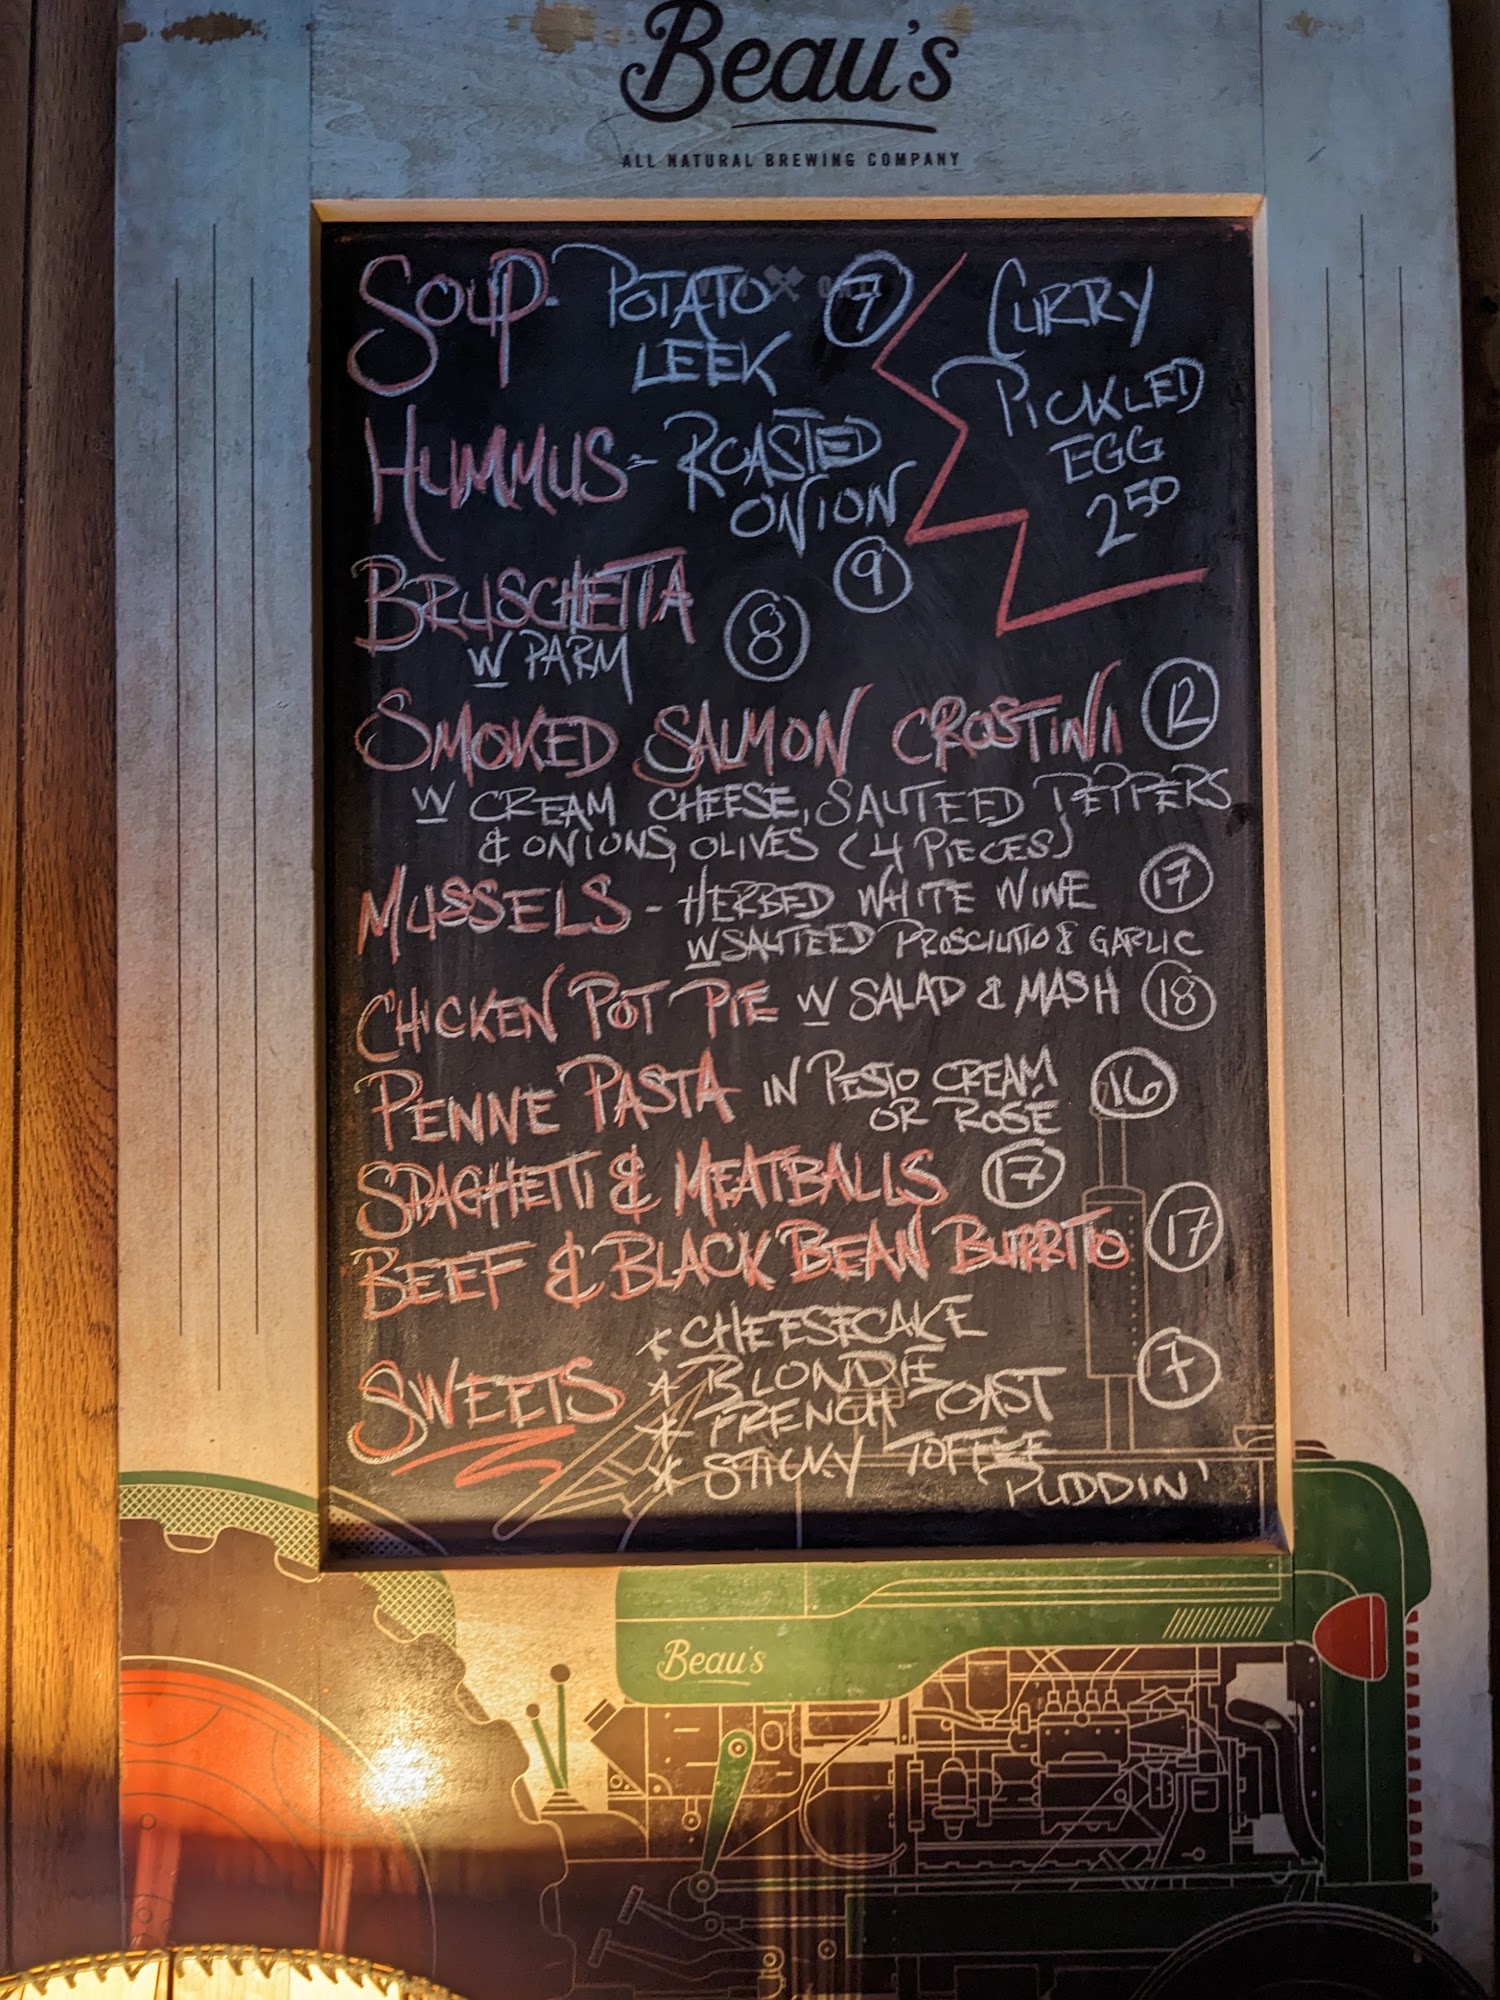 Beau's
ALL NATURAL BREWING COMPANY
SOUP - POTATO 7
LEEK
CURRY
PICKLED
EGG
2 50
HUMMUS - ROASTED
ONION
9
BRUSCHETTA
W PARM 8
SMOKED SALMON CROSTINI 12
W CREAM CHEESE, SAUTEED PEPPERS
& ONIONS, OLIVES (4 PIECES)
MUSSELS - HERBED WHITE WINE 17
W SAUTEED PROSCIUTTO & GARLIC
CHICKEN POT PIE W SALAD & MASH 18
PENNE PASTA IN PESTO CREAM 16
OR ROSE
SPAGHETTI & MEATBALLS 17
BEEF & BLACK BEAN BURRITO 17
SWEETS * CHEESECAKE 7
* BLONDIE
* FRENCH TOAST
* STICKY TOFFEE
PUDDIN'
Beau's